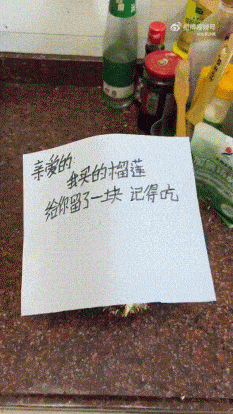 亲爱的
我买的榴莲
给你留了一块 记得吃